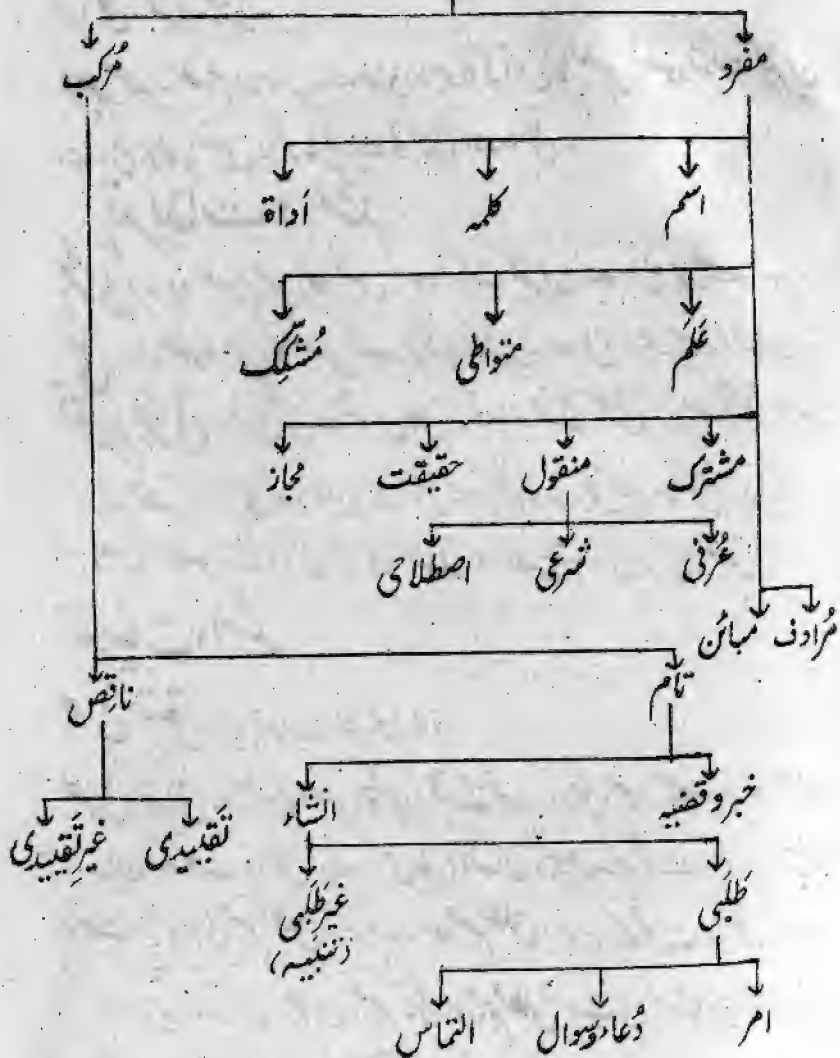 مفرد مُرکب
اسم کلمہ أداة
عَلَم متواطی مُشکِّک
مشترک منقول حقیقت مجاز
عُرفی شرعی اصطلاحی
مُرادف مبائن
تام ناقِص
خبر و قضیہ انشاء تَقیِیدی غیرِتَقیِیدی
طَلَبی غیرطَلَبی
(تنبیہ)
امر دُعاء و سوال التماس